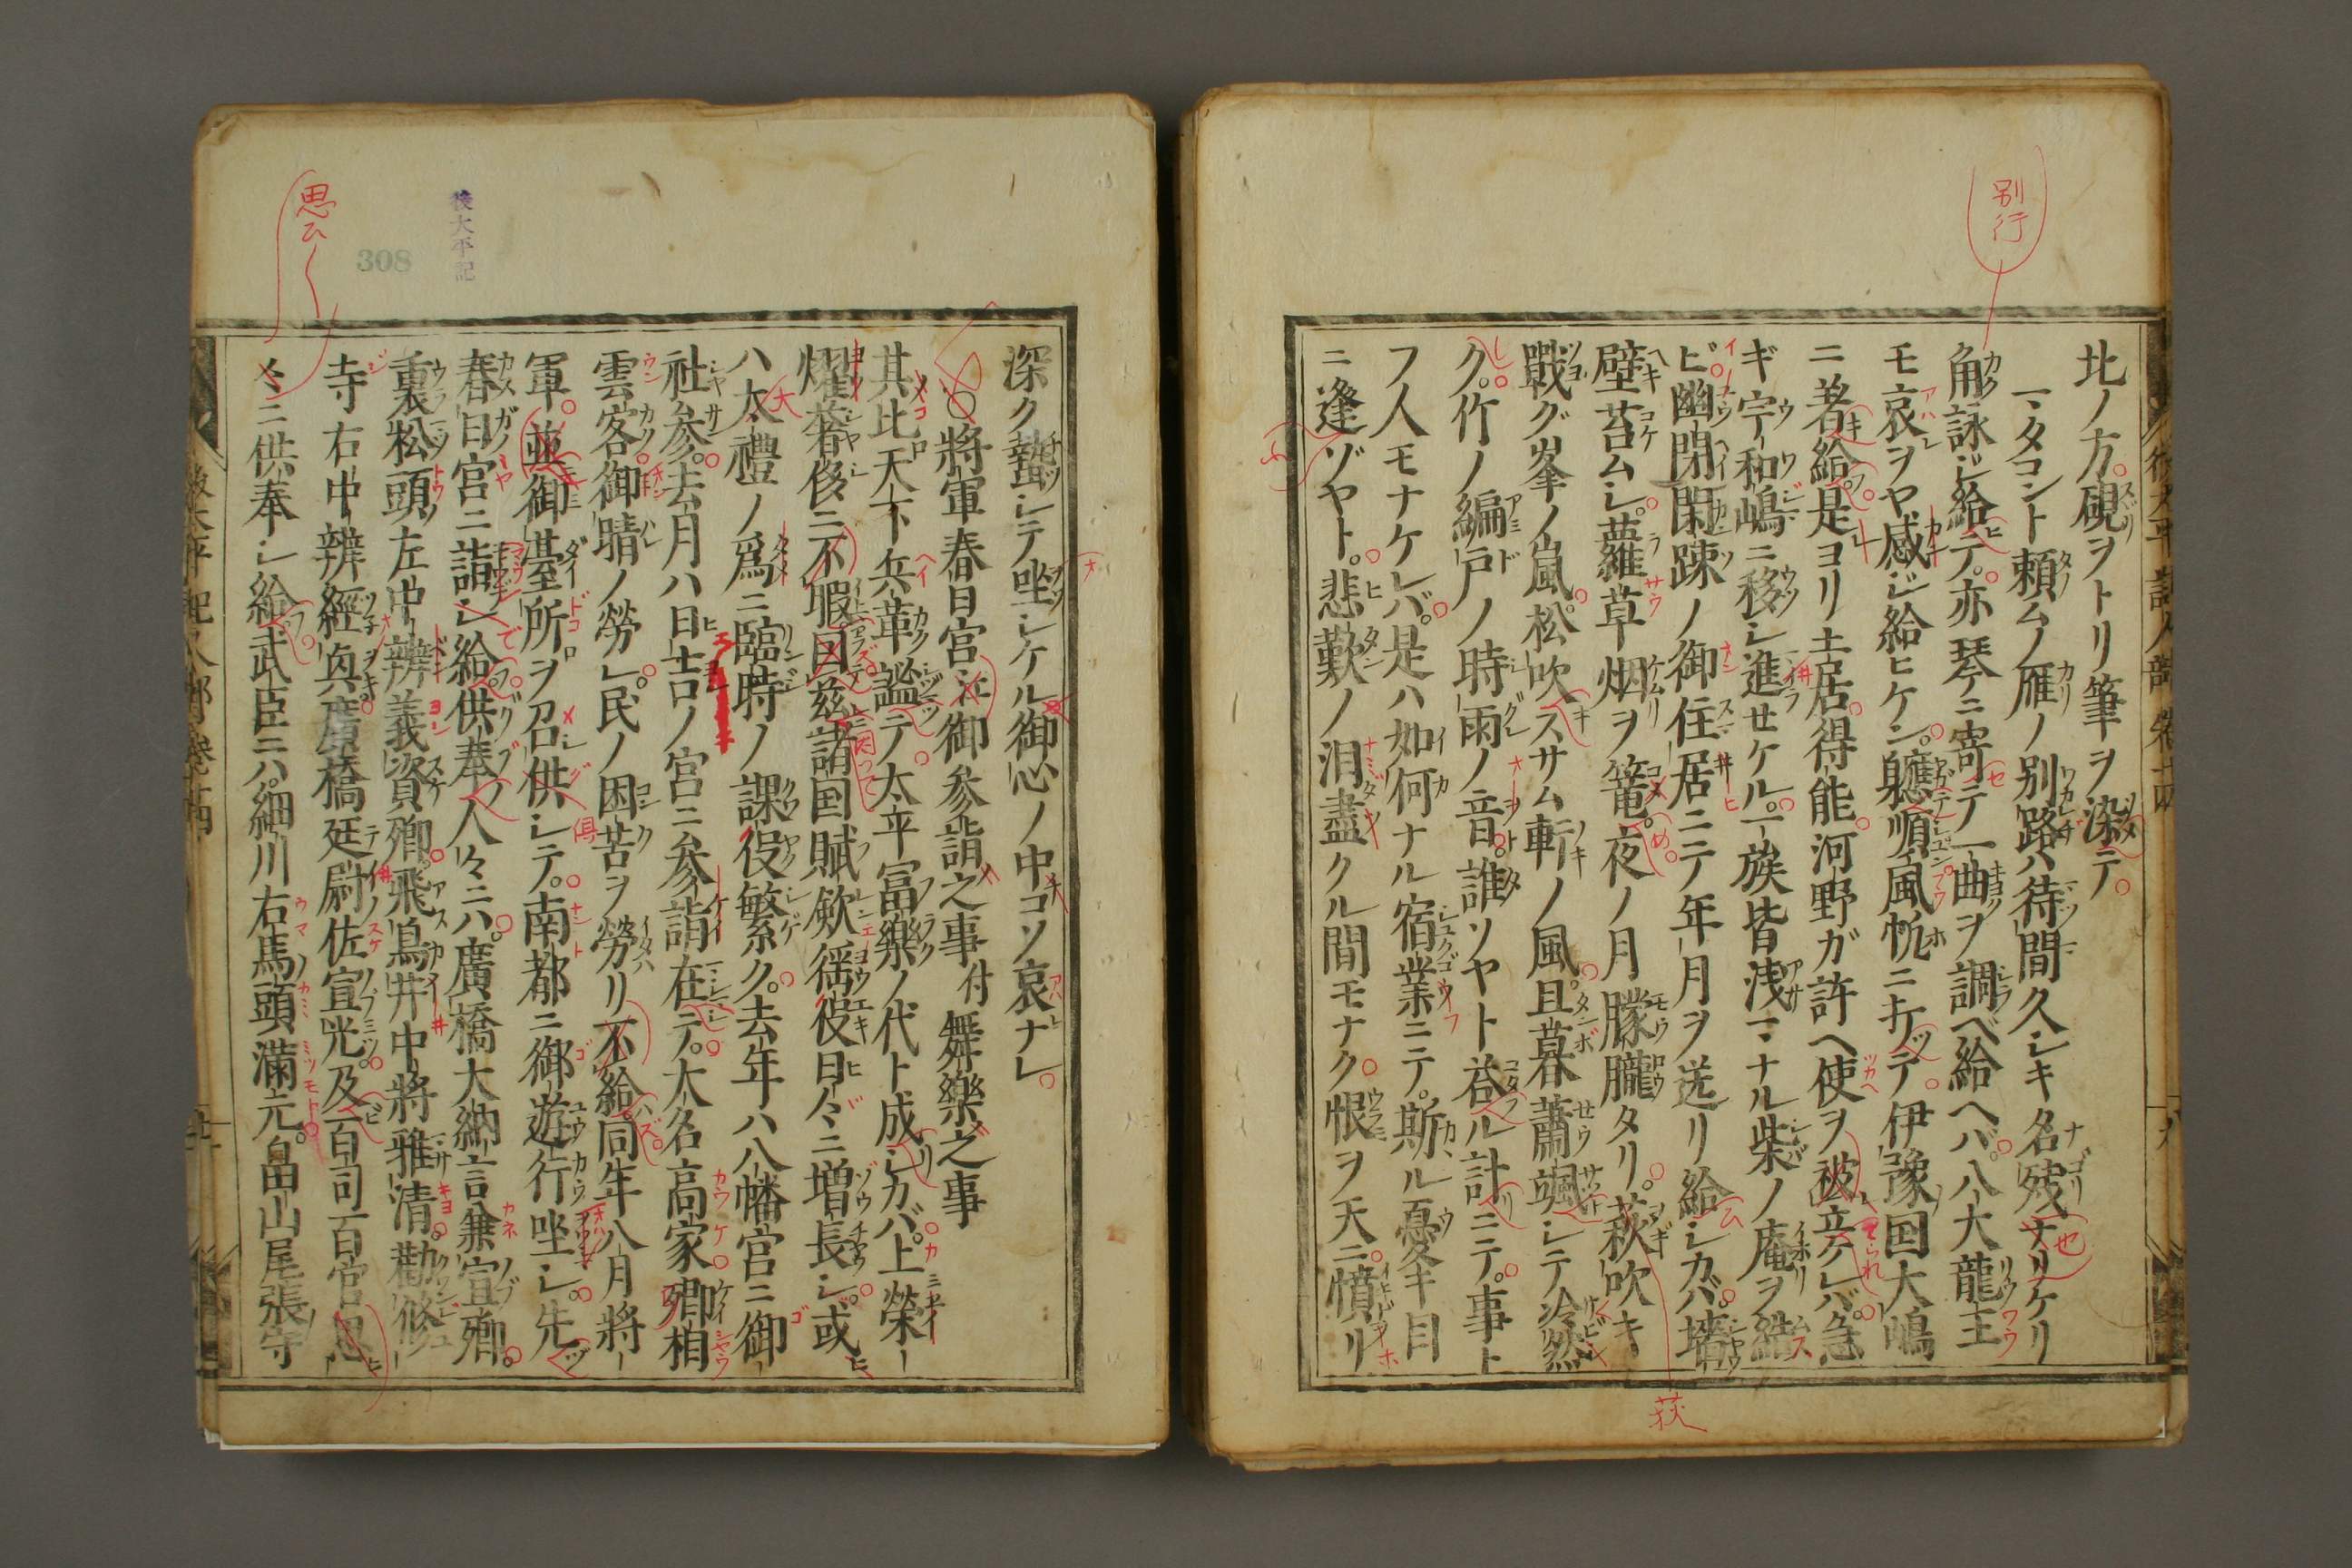 別行
北ノ方。硯ヲトリ筆ヲ染テ
マタコント頼ムノ雁ノ別路ハ待間久シキ名残ナリケリ
角詠ジ給テ。亦琴ニ寄テ一曲ヲ調ベ給ヘバ。八大龍王
モ哀ヲヤ感ジ給ヒケン。軈順風帆ニキツテ伊豫国大嶋
ニ著給。是ヨリ土居得能河野ガ許ヘ使ヲ被立ケレバ。急
ギ宇和嶋ニ移シ進セケル。一族皆浅マナル柴ノ庵ヲ結
ビ。幽閉閑疎ノ御住居ニテ年月ヲ送リ給シカバ。墻
壁苔ムシ。蘿草烟ヲ篭。夜ノ月朦朧タリ。萩吹キ
戰グ峯ノ嵐。松吹スサム斬ノ風。且暮蕭颯シテ冷然
ク。竹ノ編戸ノ時雨ノ音。誰ソヤト荅ル計ニテ。事ト
フ人モナケレバ。是ハ如何ナル宿業ニテ。斯ル憂キ目
ニ逢ゾヤト。悲歎ノ泪盡クル間モナク。恨ヲ天ニ憤リ
荻
後太平記
308
思ひ〱
深ク蟄シテ坐シケル御心ノ中コソ哀ナレ
○將軍春日宮江御参詣之事付舞樂之事
其比天下兵革謐テ。太平冨樂ノ代ト成シカバ。上榮
燿奢侈ニ不暇。因茲諸国賦歛徭役日々ニ増長シ。或
ハ太禮ノ爲ニ臨時ノ課役繁ク。去年ハ八幡宮ニ御
社参。去月ハ日吉ノ宮ニ参詣在テ。大名高家卿相
雲客御晴ノ勞シ。民ノ困苦ヲ勞リ不給。同年八月將
軍並御基所ヲ召供シテ。南都ニ御遊行坐シ。先
春日宮ニ詣シ給。供奉人々ニハ。廣橋大納言兼宣卿。
裏松頭左中辨義資卿。飛鳥井中將雅清。勧修
寺右中辨經奐。廣橋廷尉佐宣光。及百司百官思
〻ニ供奉シ給。武臣ニハ。細川右馬頭滿元。畠山尾張守